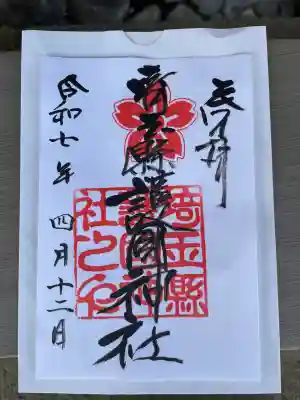 奉拝
埼玉縣護國神社
埼玉縣
護國神
社之印
令和七年 四月十二日